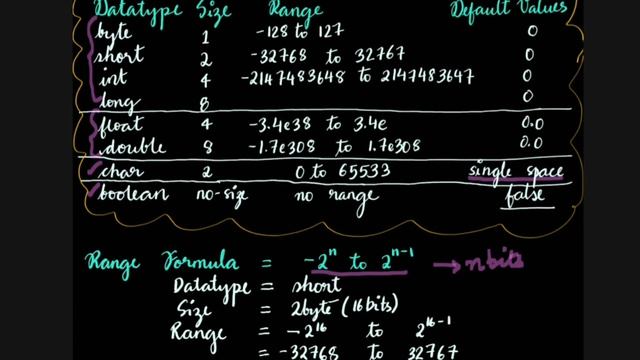 Datatype Size Range Default Values
byte 1 -128 to 127 0
short 2 -32768 to 32767 0
int 4 -2147483648 to 2147483647 0
long 8 0
float 4 -3.4e38 to 3.4e 0.0
double 8 -1.7e308 to 1.7e308 0.0
char 2 0 to 65533 single space
boolean no-size no range false
Range Formula = -2ⁿ to 2ⁿ⁻¹ → n bits
Datatype = short
Size = 2byte (16bits)
Range = -2¹⁶ to 2¹⁶⁻¹
= -32768 to 32767